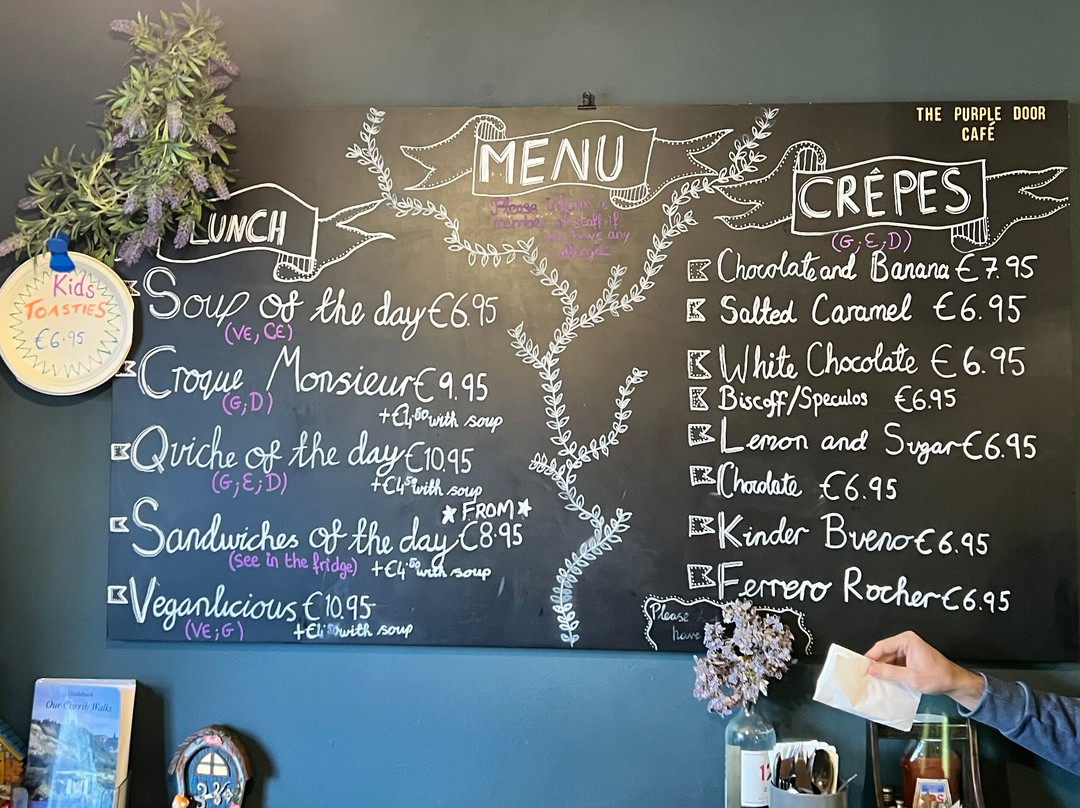 THE PURPLE DOOR
CAFÉ
MENU
Please inform a
member of staff if
you have any
allergies
LUNCH
Soup of the day €6.95
(VE, CE)
Croque Monsieur €9.95
(G;D)
+€4.50 with soup
Quiche of the day €10.95
(G;E;D)
+€4.50 with soup
★ FROM ★
Sandwiches of the day €8.95
(see in the fridge)
+€4.50 with soup
Veganlicious €10.95
(VE;G)
+€4.50 with soup
CRÊPES
(G;E;D)
Chocolate and Banana €7.95
Salted Caramel €6.95
White Chocolate €6.95
Biscoff/Speculos €6.95
Lemon and Sugar €6.95
Chocolate €6.95
Kinder Bueno €6.95
Ferrero Rocher €6.95
Please
have
Kids
TOASTIES
€6.95
Guidebook
Our Corrib Walks